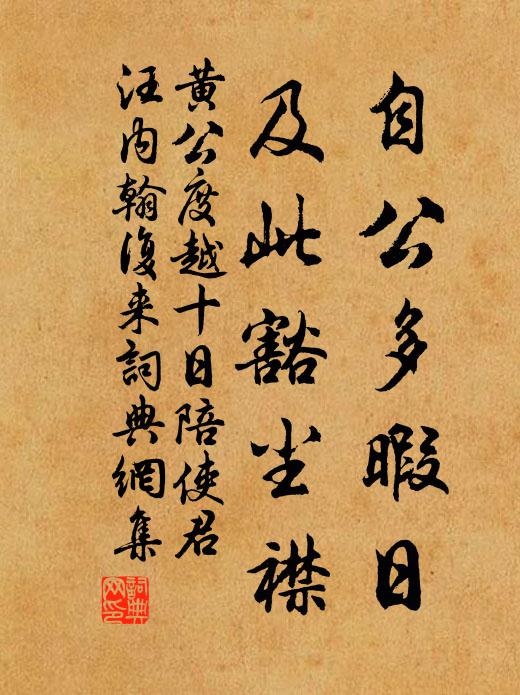 自公多暇日
及此豁尘襟
黄公度越十日陪使君
汪内翰復来詞典網集
詞典网印